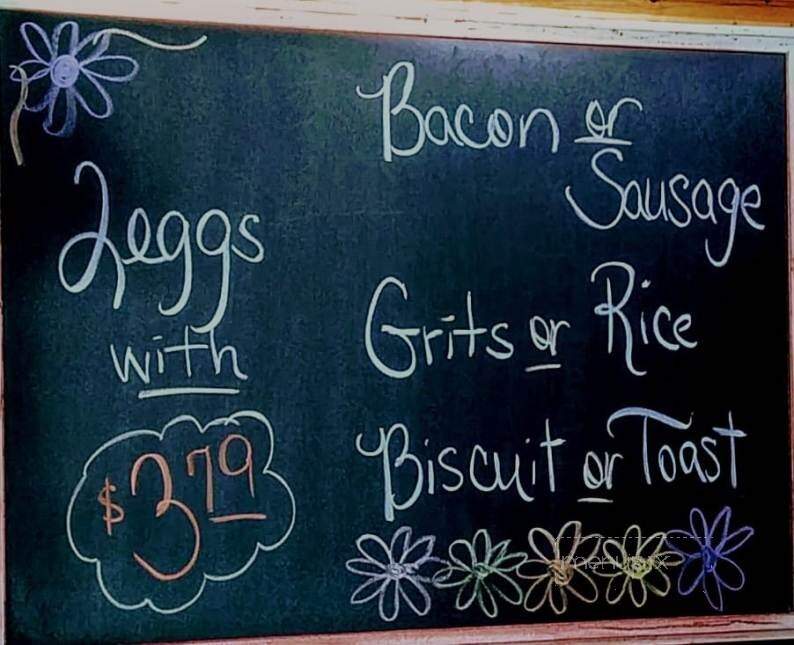 2 eggs
with
$3.79
Bacon or
Sausage
Grits or Rice
Biscuit or Toast
menupix